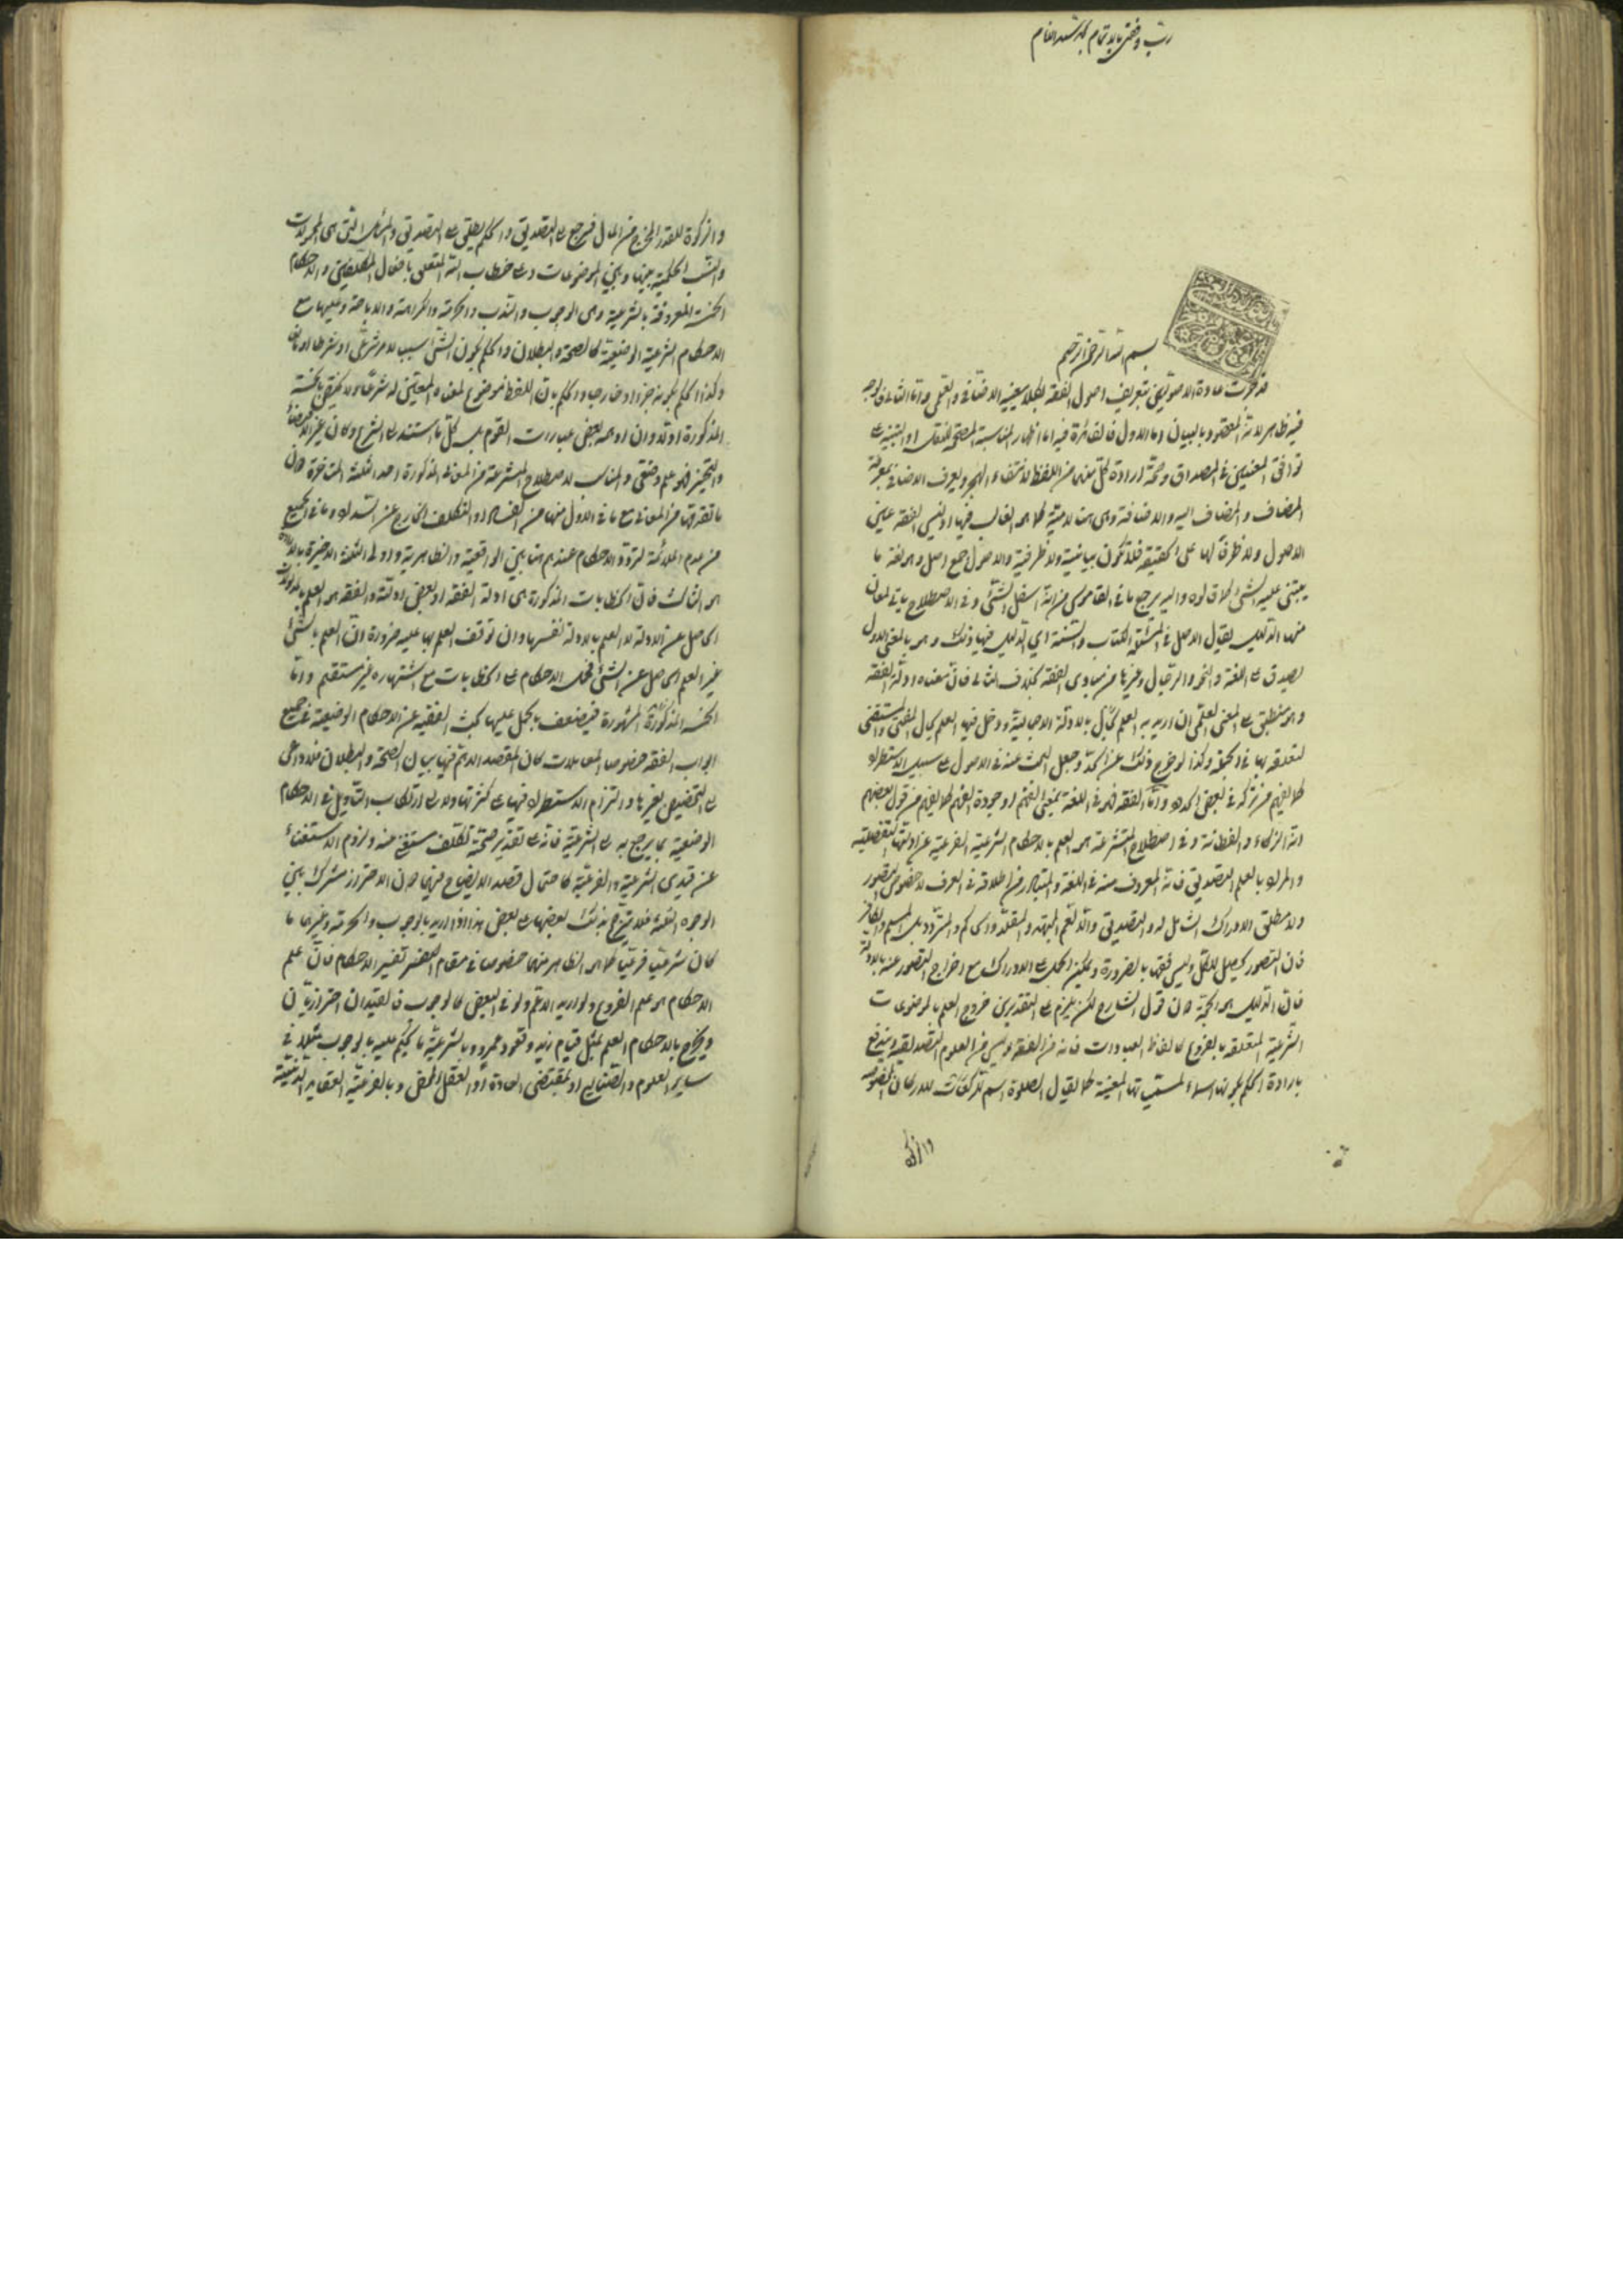 رب وفقني بالاتمام
بسم الله الرحمن الرحيم
قد جرت عادة الاصوليين بتعريف اصول الفقه بكلا معنييه الاضافي والعلمي واما الثاني فالوجه
فيه ظاهر لانه المقصود بالبيان واما الاول فالفائدة فيه اما اظهار المناسبة المصححة للنقل او التنبيه على
توافق المعنيين في المصداق وصحة ارادة كل منهما من اللفظ لانتفاء الهجر ويعرف الاضافي بمعرفة
المضاف والمضاف اليه والاضافة وهي هنا لامية كما هو الغالب فيها اذ ليس الفقه عين
الاصول ولا ظرفا لها على الحقيقة فلا تكون بيانية ولا ظرفية والاصول جمع اصل وهو لغة ما
يبتنى عليه الشيء كما قالوه واليه يرجع ما في القاموس من انه اسفل الشيء وفي الاصطلاح ياتي لمعان
منها الدليل يقال الاصل في المسئلة الكتاب والسنة اي الدليل فيها ذلك وهو بالمعنى الاول
يصدق على اللغة والنحو والرجال وغيرها من مبادي الفقه بخلاف الثاني فان معناه ادلة الفقه
وهو منطبق على المعنى العلمي ان اريد به العلم بالادلة الاجمالية ودخل فيها العلم بحال المفتي والمستفتي
لتعلقه بها في الجملة وكذا لو خرج ذلك عن الحد وجعل البحث عنه في الاصول على سبيل الاستطراد
كما يفهم من تركه في بعض الحدود واما الفقه فهو في اللغة بمعنى الفهم او جودة الفهم كما يفهم من قول بعضهم
انه الذكاء والفطانة وفي اصطلاح المتشرعة هو العلم بالاحكام الشرعية الفرعية عن ادلتها التفصيلية
والمراد بالعلم التصديق فانه المعروف منه في اللغة والمتبادر من اطلاقه في العرف لا خصوص التصور
ولا مطلق الادراك الشامل له والتصديق والا لعم المجتهد والمقلد والحاكم والمتردد بل المسلم والكافر
فان التصور يحصل للكل وليس فقها بالضرورة ويمكن الحمل على الادراك مع اخراج التصور عنه بالادلة
فان الدليل هو الحجة وان قول الشارح لكن يلزم على التقديرين خروج العلم بالموضوعات
الشرعية المتعلقة بالفروع كالفاظ العبادات فانه من الفقه وليس من العلوم التصديقية ويندفع
بارادة الحكم بكونها اسماء لمسمياتها المعينة كما يقال الصلوة اسم للاركان المخصوصة
والزكوة
والزكوة للقدر المخرج من المال فيرجع الى التصديق والحكم يطلق على التصديق والمسائل التي هي المحمولات
والنسب الحكمية بينها وبين الموضوعات وعلى خطاب الله المتعلق بافعال المكلفين والاحكام
الخمسة المعروفة بالشرعية وهي الوجوب والندب والحرمة والكراهة والاباحة وعليها مع
الاحكام الشرعية الوضعية كالصحة والبطلان والحكم بكون الشيء سببا لامر شرعي او شرطا او مانعا
وكذا الحكم بكونه جزءا او خارجا والحكم بان اللفظ موضوع لمعناه المعين له شرعا ولا يختص بالخمسة
المذكورة او تدوان اوهمه بعض عبارات القوم بل كل ما استند الى الشرع وكان غير الاقتضاء
والتخيير فهو حكم وضعي والمناسب لاصطلاح المتشرعة من المعاني المذكورة احد الثلثة المتاخرة دون
ما تقدمها من المعاني مع ما في الاول منها من الفساد او التكلف الخارج عن السداد وما في الجميع
من عدم الملائمة لتردد الاحكام عندهم هنا بين الواقعية والظاهرية واولى الثلثة الاخيرة بالارادة
هو الثالث فان الخطابات المذكورة هي ادلة الفقه او بعض ادلته والفقه هو العلم بالمدلولات
الحاصل عن الادلة لا العلم بالادلة نفسها وان توقف العلم بها عليه ضرورة وان العلم بالشيء
غير العلم الحاصل عن الشيء فحمل الاحكام على الخطابات مع اشتهاره غير مستقيم واما
الخمسة المذكورة المشهورة فيضعف الحمل عليها بحث الفقيه عن الاحكام الوضعية في جميع
ابواب الفقه خصوصا المعاملات كان المقصد الاهم فيها بيان الصحة والبطلان فلا داعي
الى التخصيص بغيرها والتزام الاستطراد فيها على كثرتها ولا الى ارتكاب التاويل في الاحكام
الوضعية بما يرجع به الى الشرعية فانه على تقدير صحته تكلف مستغنى عنه ولزوم الاستغناء
عن قيدي الشرعية والفرعية كاحتمال قصد الايضاح فيهما دون الاحتراز مشترك بين
الوجوه الثلثة فلا يترجح بذلك بعضها على بعض هذا اذا اريد بالوجوب والحرمة وغيرهما ما
كان شرعيا فرعيا كما هو الظاهر منها خصوصا في مقام تفسير الاحكام فان علم
الاحكام هو علم الفروع ولو اريد الاعم ولو في البعض كالوجوب فالقيدان احترازيان
ويخرج بالاحكام العلم بمثل قيام زيد وقعود عمرو وبالشرعية ما يحكم عليه بالوجوب مثلا في
ساير العلوم والصنايع او بمقتضى العادة او العقل المحض وبالفرعية العقايد الدينية